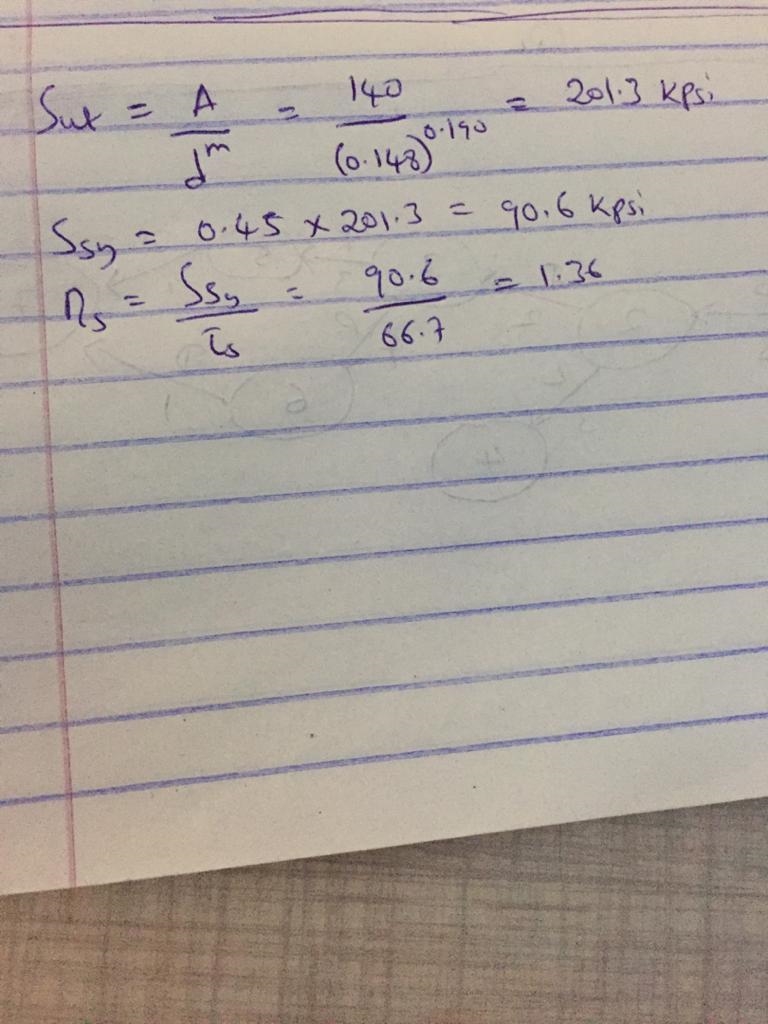 Sut = A / d^m = 140 / (0.148)^0.190 = 201.3 kpsi
Ssy = 0.45 × 201.3 = 90.6 kpsi
ns = Ssy / τs = 90.6 / 66.7 = 1.36